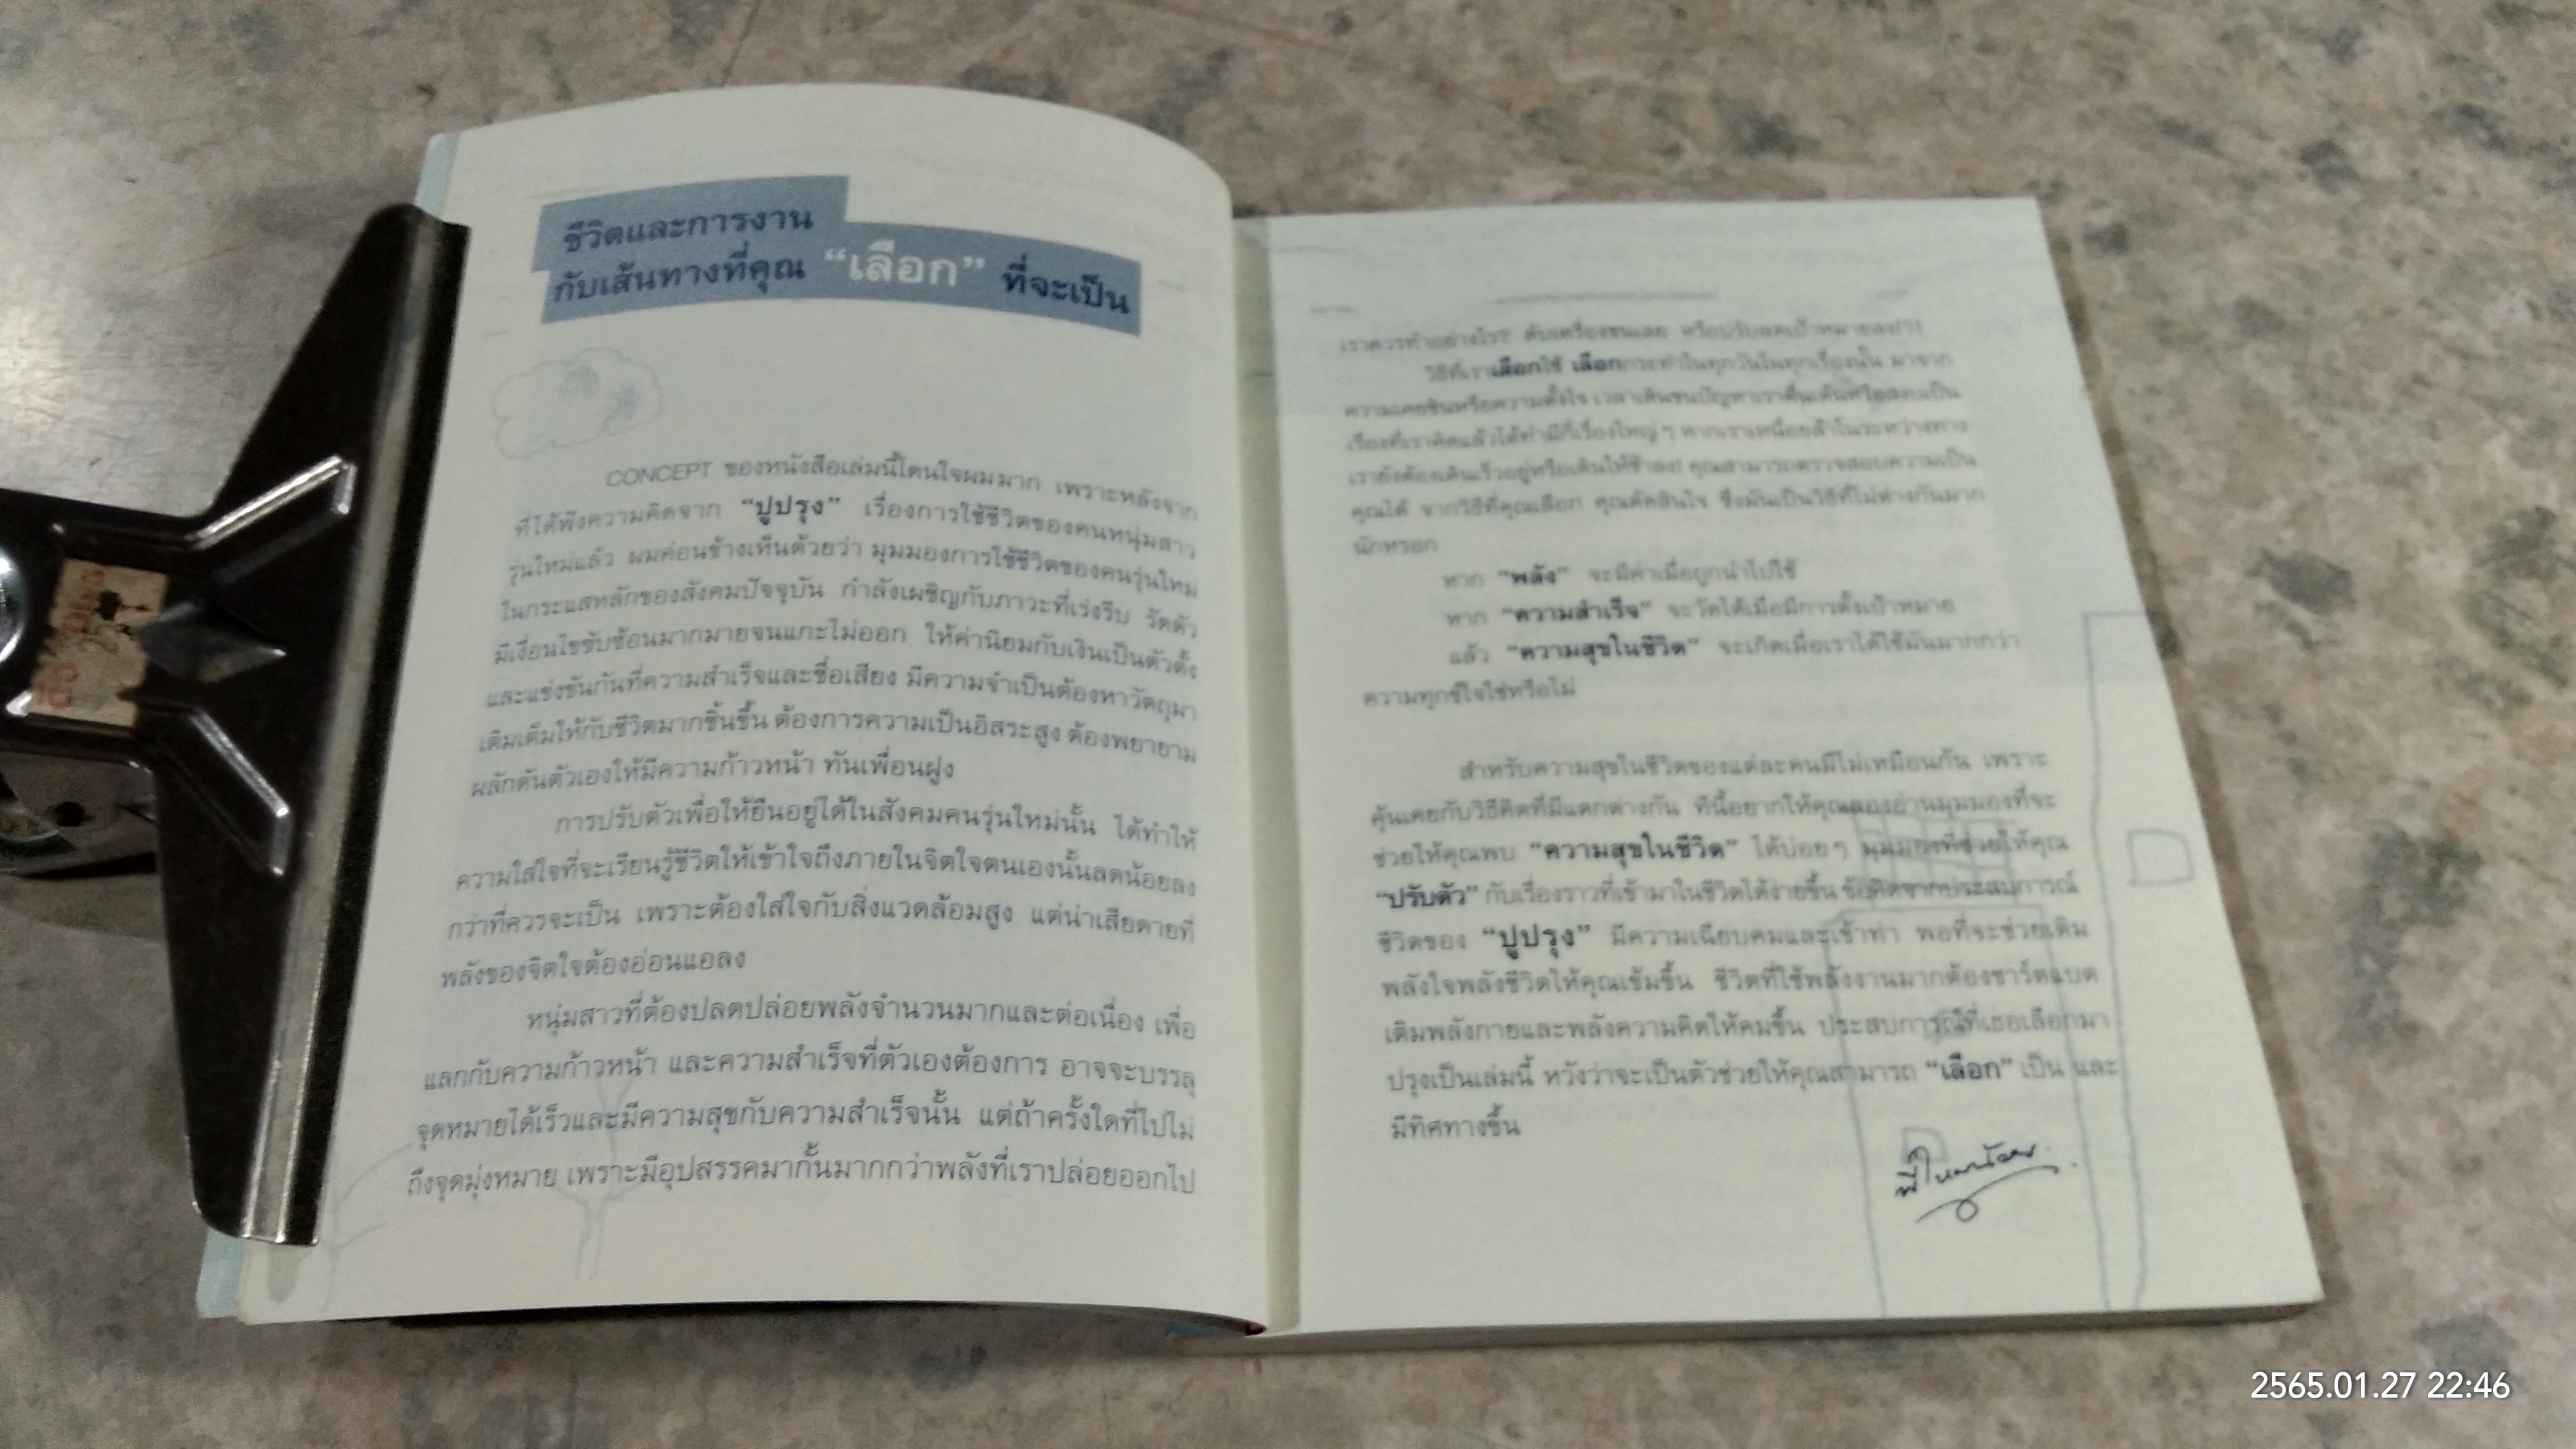 ชีวิตและการงาน
กับเส้นทางที่คุณ “เลือก” ที่จะเป็น
CONCEPT ของหนังสือเล่มนี้โดนใจผมมาก เพราะหลังจาก
ที่ได้ฟังความคิดจาก “ปูปรุง” เรื่องการใช้ชีวิตของคนหนุ่มสาว
รุ่นใหม่แล้ว ผมค่อนข้างเห็นด้วยว่า มุมมองการใช้ชีวิตของคนรุ่นใหม่
ในกระแสหลักของสังคมปัจจุบัน กำลังเผชิญกับภาวะที่เร่งรีบ รัดตัว
มีเงื่อนไขซับซ้อนมากมายจนแกะไม่ออก ให้ค่านิยมกับเงินเป็นตัวตั้ง
และแข่งขันกันที่ความสำเร็จและชื่อเสียง มีความจำเป็นต้องหาวัตถุมา
เติมเต็มให้กับชีวิตมากขึ้น ต้องการความเป็นอิสระสูง ต้องพยายาม
ผลักดันตัวเองให้มีความก้าวหน้า ทันเพื่อนฝูง
การปรับตัวเพื่อให้ยืนอยู่ได้ในสังคมคนรุ่นใหม่นั้น ได้ทำให้
ความใส่ใจที่จะเรียนรู้ชีวิตให้เข้าใจถึงภายในจิตใจตนเองนั้นลดน้อยลง
กว่าที่ควรจะเป็น เพราะต้องใส่ใจกับสิ่งแวดล้อมสูง แต่น่าเสียดายที่
พลังของจิตใจต้องอ่อนแอลง
หนุ่มสาวที่ต้องปลดปล่อยพลังจำนวนมากและต่อเนื่อง เพื่อ
แลกกับความก้าวหน้า และความสำเร็จที่ตัวเองต้องการ อาจจะบรรลุ
จุดหมายได้เร็วและมีความสุขกับความสำเร็จนั้น แต่ถ้าครั้งใดที่ไปไม่
ถึงจุดมุ่งหมาย เพราะมีอุปสรรคมากั้นมากกว่าพลังที่เราปล่อยออกไป
เราควรทำอย่างไร? ดับเครื่องชนเลย หรือปรับลดเป้าหมายลง!?!
วิธีที่เราเลือกใช้ เลือกกระทำในทุกวันในทุกเรื่องนั้น มาจาก
ความเคยชินหรือความตั้งใจ เวลาเดินชนปัญหาเราตื่นเต้นหรือสงบเป็น
เรื่องที่เราคิดแล้วได้ทำมีกี่เรื่องใหญ่ๆ หากเราเหนื่อยล้าในระหว่างทาง
เรายังต้องเดินเร็วอยู่หรือเดินให้ช้าลง! คุณสามารถตรวจสอบความเป็น
คุณได้ จากวิธีที่คุณเลือก คุณตัดสินใจ ซึ่งมันเป็นวิธีที่ไม่ต่างกันมาก
นักหรอก
หาก “พลัง” จะมีค่าเมื่อถูกนำไปใช้
หาก “ความสำเร็จ” จะวัดได้เมื่อมีการตั้งเป้าหมาย
แล้ว “ความสุขในชีวิต” จะเกิดเมื่อเราได้ใช้มันมากกว่า
ความทุกข์ใจใช่หรือไม่
สำหรับความสุขในชีวิตของแต่ละคนมีไม่เหมือนกัน เพราะ
คุ้นเคยกับวิธีคิดที่มีแตกต่างกัน ทีนี้อยากให้คุณลองอ่านมุมมองที่จะ
ช่วยให้คุณพบ “ความสุขในชีวิต” ได้บ่อยๆ มุมมองที่ช่วยให้คุณ
“ปรับตัว” กับเรื่องราวที่เข้ามาในชีวิตได้ง่ายขึ้น ข้อคิดจากประสบการณ์
ชีวิตของ “ปูปรุง” มีความเฉียบคมและเข้าท่า พอที่จะช่วยเติม
พลังใจพลังชีวิตให้คุณเข้มขึ้น ชีวิตที่ใช้พลังงานมากต้องชาร์ตแบต
เติมพลังกายและพลังความคิดให้คมขึ้น ประสบการณ์ที่เธอเลือกมา
ปรุงเป็นเล่มนี้ หวังว่าจะเป็นตัวช่วยให้คุณสามารถ “เลือก” เป็น และ
มีทิศทางขึ้น
2565.01.27 22:46